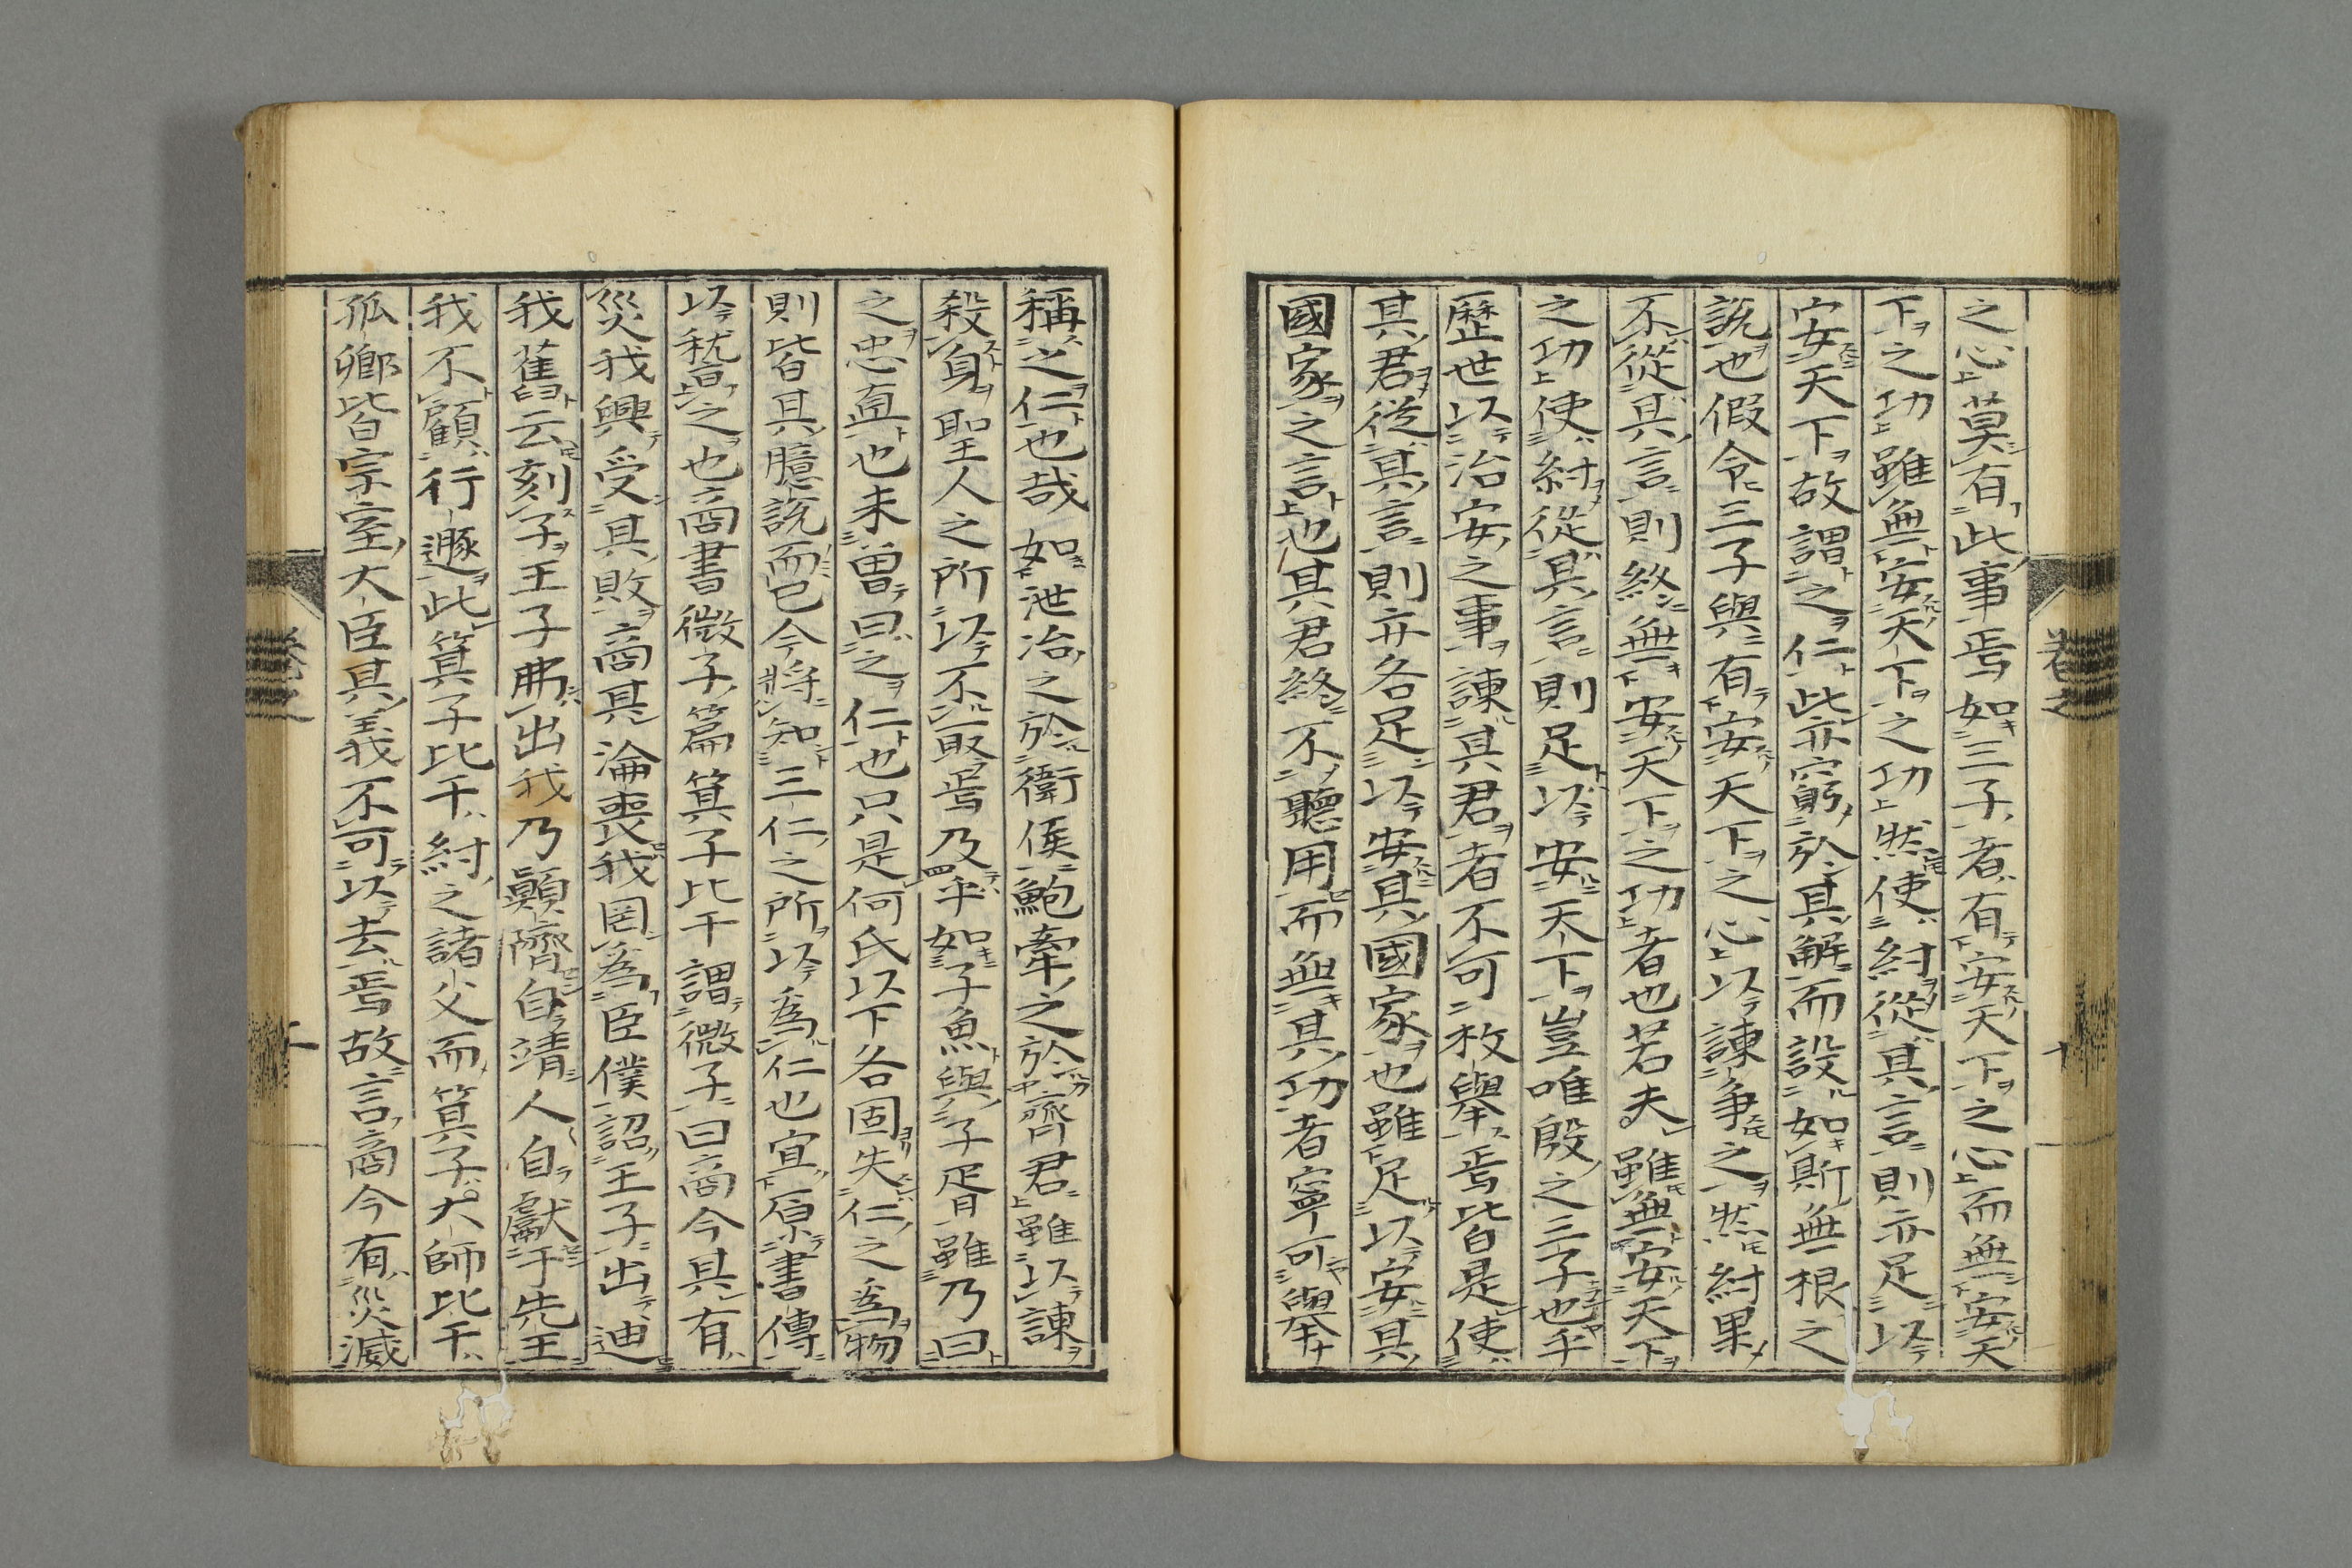 之心莫有此事焉如三子者有安天下之心而無安天
下之功雖無安天下之功然使紂從其言則亦足以
安天下故謂之仁此亦窮於其解而設如斯無根之
說也假令三子與有安天下之心以諫爭之然紂果
不從其言則終無安天下之功者也若夫雖無安天下
之功使紂從其言則足以安天下豈唯殷之三子也乎
歷世以治安之事諫其君者不可枚舉焉皆是使
其君從其言則亦各足以安其國家也雖足以安其
國家之言也其君終不聽用而無其功者寧可舉
稱之仁也哉如泄冶之於衛侯鮑牽之於齊君雖以諫
殺身聖人之所以不取焉及乎如子魚與子胥雖乃曰
之忠直也未曾曰之仁也只是何氏以下各固失仁之為物
則皆其臆說而已今將知三仁之所以為仁也宜原書傳
以嵇之也商書微子篇箕子比干謂微子曰商今其有
災我興受其敗商其淪喪我罔為臣僕詔王子出迪
我舊云刻子王子弗出我乃顛隮自靖人自獻于先王
我不顧行遯此箕子比干紂之諸父而箕子大師比干
孤卿皆宗室大臣其義不可以去焉故言商今有災滅